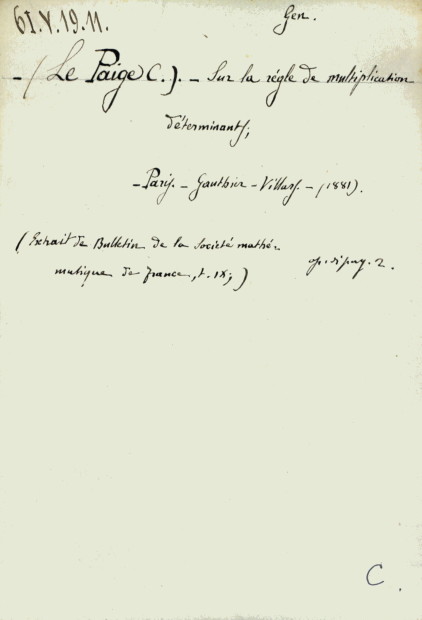 61.V.19.11.
Gen.
- (Le Paige C.). - Sur la régle de multiplication
déterminants;
- Paris. - Gauthier - Villars. - (1881).
(Extrait de Bulletin de la société mathé-
matique de france, t. IX;)
op. di pag. 2.
C.